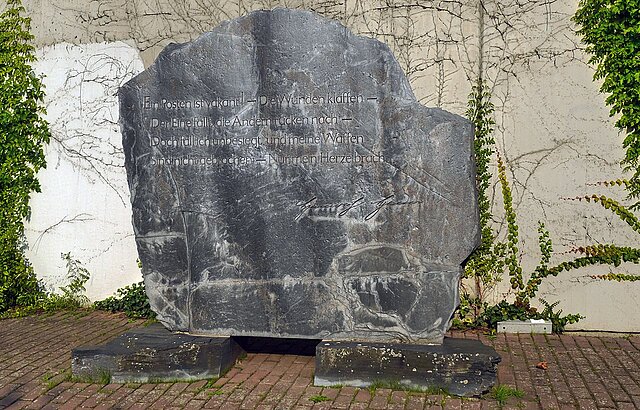 Ein Posten ist vakant! – Die Wunden klaffen –
Der Eine fällt, die Andern rücken nach –
Doch fall ich unbesiegt, und meine Waffen
Sind nicht gebrochen – Nur mein Herze brach.